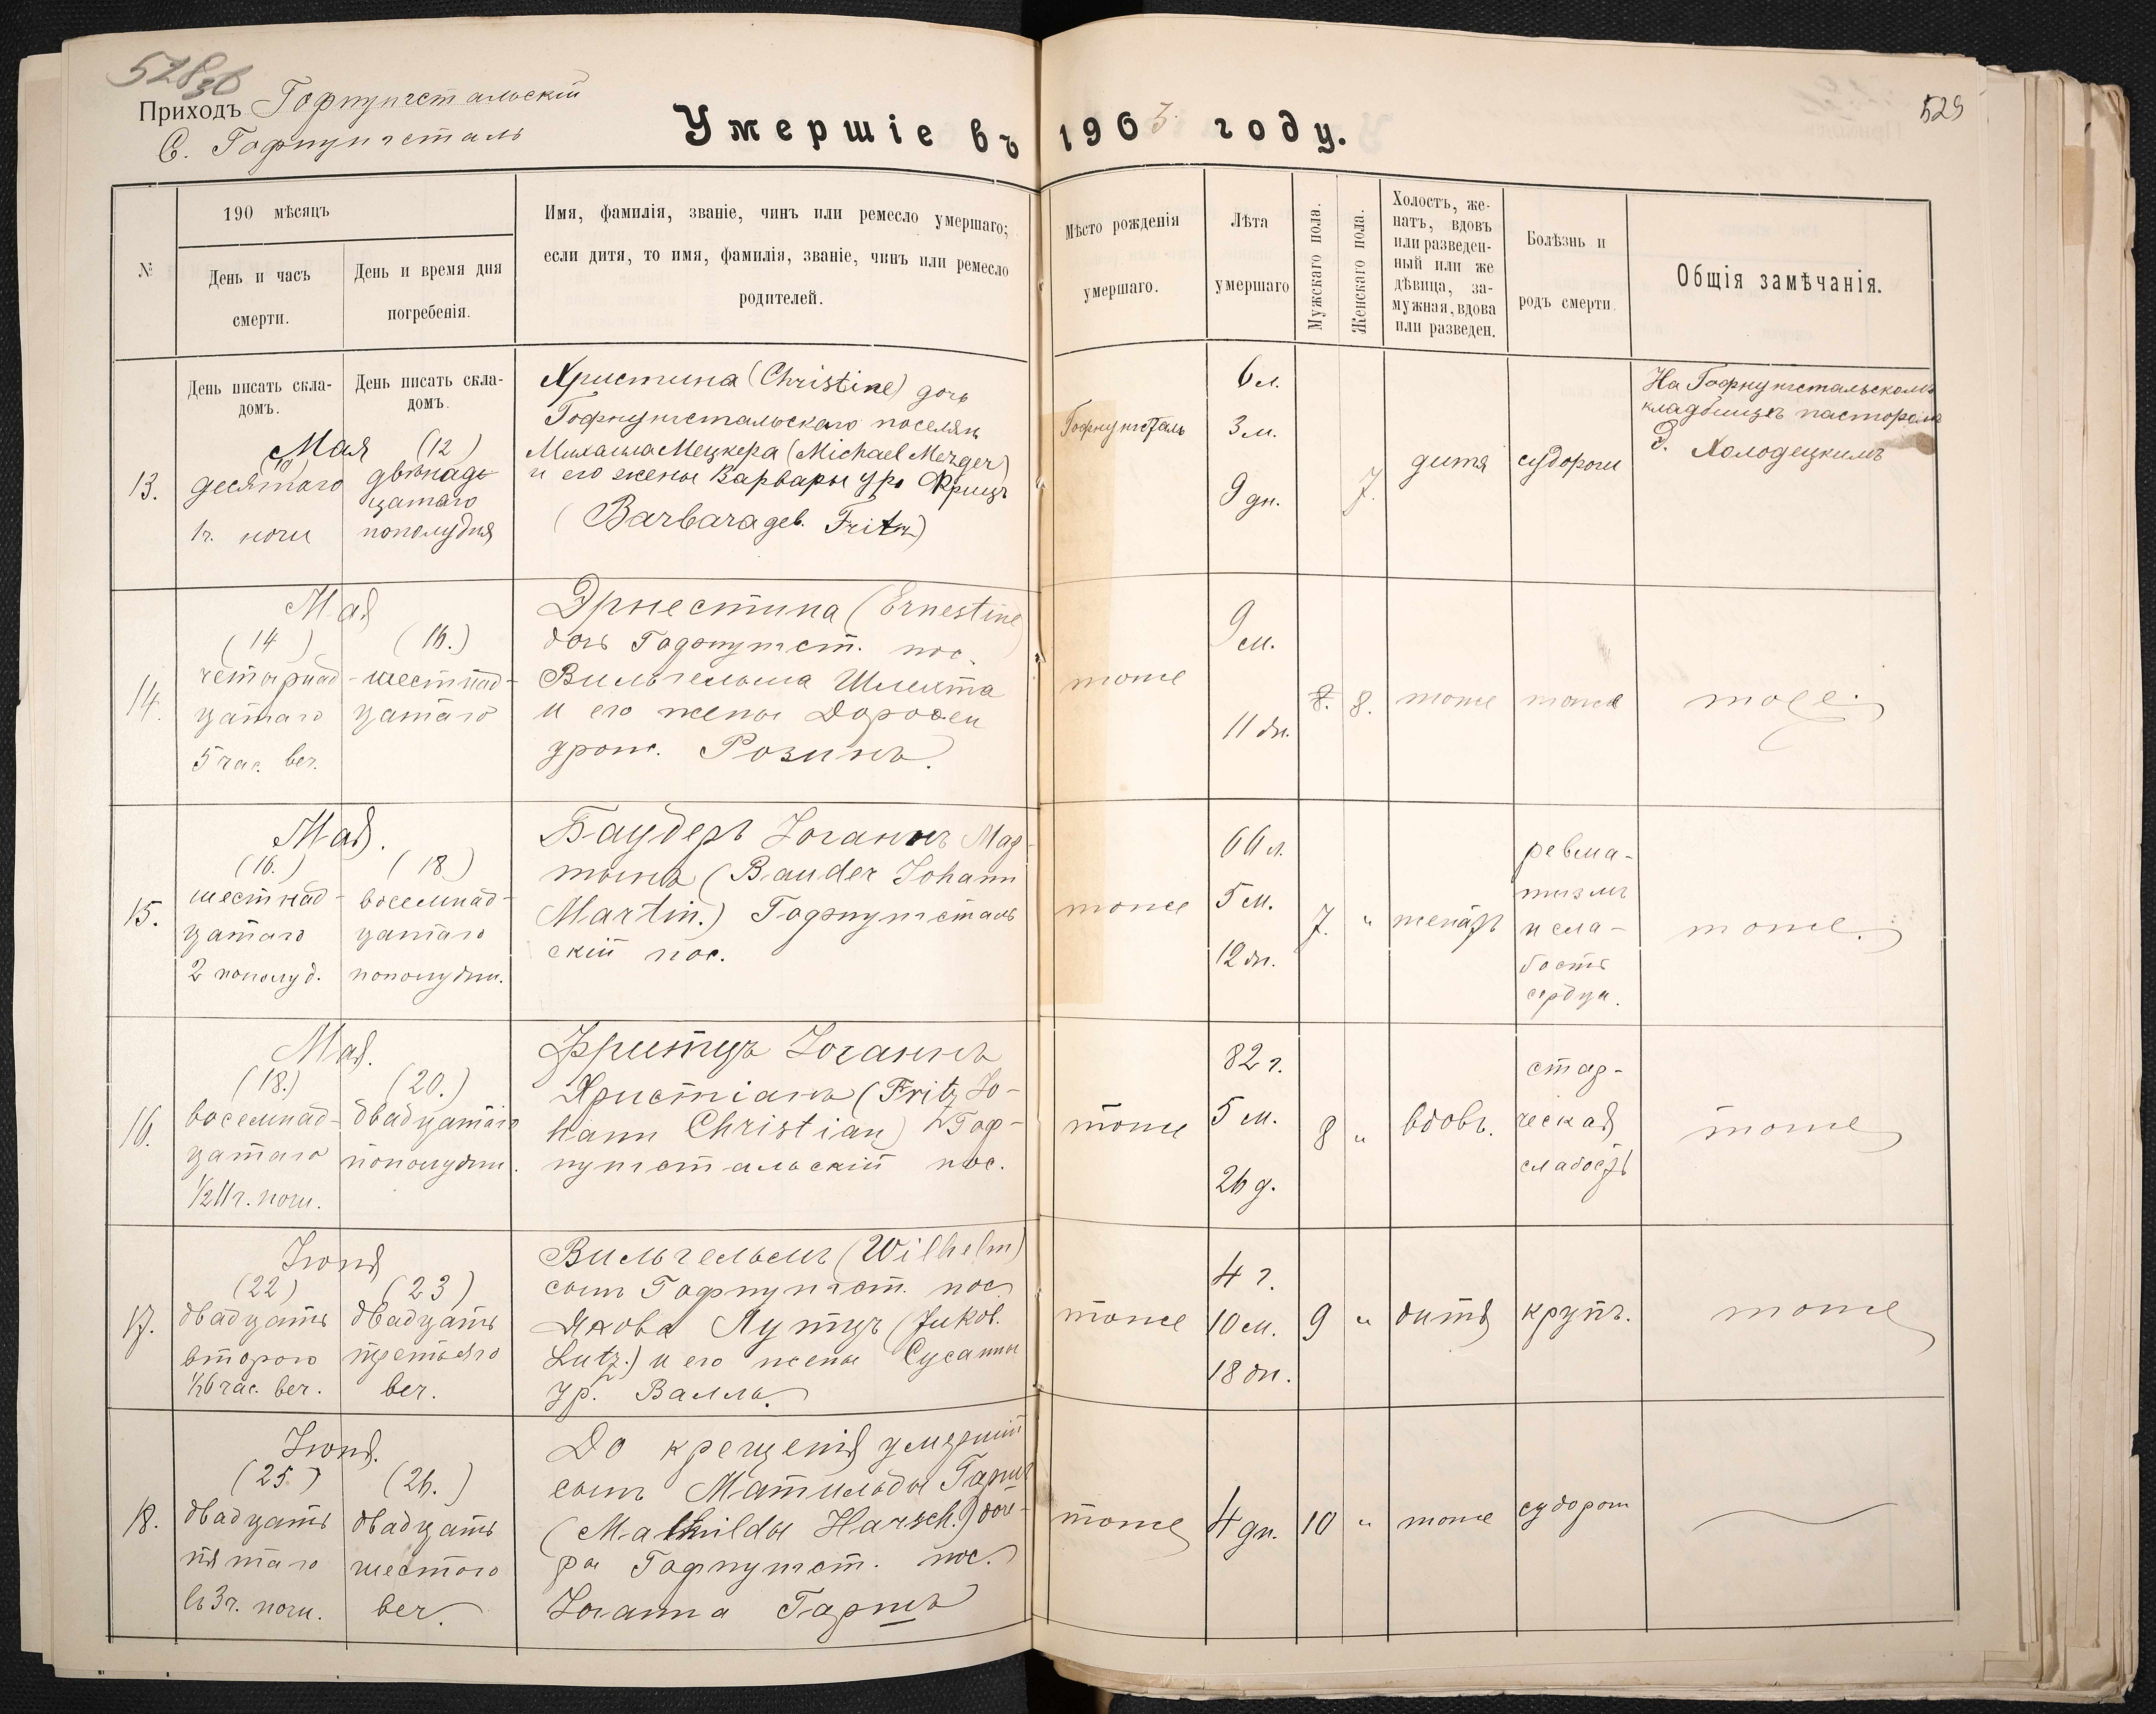 528об
529
Приходъ Гофнунгстальскій
С. Гофнунгсталь
Умершіе въ 1903 году.
№
190 мѣсяцъ
День и часъ смерти.
День и время дня погребенія.
Имя, фамилія, званіе, чинъ или ремесло умершаго;
если дитя, то имя, фамилія, званіе, чинъ или ремесло
родителей.
Мѣсто рожденія
умершаго.
Лѣта
умершаго
Мужскаго пола.
Женскаго пола.
Холостъ, же-
натъ, вдовъ
или разведен-
ный или же
дѣвица, за-
мужная, вдова
или разведен.
Болѣзнь и
родъ смерти.
Общія замѣчанія.
День писать скла-
домъ.
День писать скла-
домъ.
13.
Мая
10
десятаго
1 ч. ночи
(12)
двѣнадц
цатаго
пополудня
Христина (Christine) дочь
Гофнунгстальскаго поселян
Михаила Мецгера (Michael Mezger)
и его жены Варвары ур. Фрицъ
(Barbara geb. Fritz)
Гофнунгсталь
6 л.
3 м.
9 дн.
7.
дитя
судороги
На Гофнунгстальскомъ
кладбищѣ пасторомъ
Э. Холодецкимъ
14.
Мая
(14)
четырнад-
цатаго
5 час. веч.
(16.)
шестнад-
цатаго
Эрнестина (Ernestine)
дочь Гофнунгст. пос.
Вильгельма Шлихта
и его жены Доротеи
урож. Розинъ.
тоже
9 м.
11 дн.
8.
8.
тоже
тоже
тоже.
15.
Мая.
(16.)
шестнад-
цатаго
2 пополуд.
(18)
восемнад-
цатаго
пополудни.
Баудеръ Іоганнъ Мар-
тинъ (Bauder Johann
Martin.) Гофнунгсталь
скій пос.
тоже
66 л.
5 м.
12 дн.
7. "
женатъ
ревма-
тизмъ
и сла-
бость
сердца.
тоже.
16.
Мая.
(18.)
восемнад-
цатаго
1/2 11 ч. ночи.
(20.)
двадцатаго
пополудни.
Фритцъ Іоганнъ
Христіанъ (Fritz Jo-
hann Christian) Гоф-
нунгстальскій пос.
тоже
82 г.
5 м.
26 д.
8 "
вдовъ.
стар-
ческая
слабость
тоже
17.
Іюня
(22)
двадцать
второго
1/2 6 час. веч.
(23)
двадцать
третьяго
веч.
Вильгельмъ (Wilhelm)
сынъ Гофнунгст. пос.
Якова Лутцъ (Jakob.
Lutz.) и его жены Сусанны
ур. Валлъ.
тоже
4 г.
10 м.
18 дн.
9 "
дитя
крупъ.
тоже
18.
Іюня.
(25)
двадцать
пятаго
въ 3 ч. ночи.
(26.)
двадцать
шестого
веч.
До крещенія умершій
сынъ Матильды Гаршъ
(Mathilde Harsch.) доче-
ри Гофнунгст. пос.
Іоганна Гаршъ
тоже
4 дн.
10 "
тоже
судорог